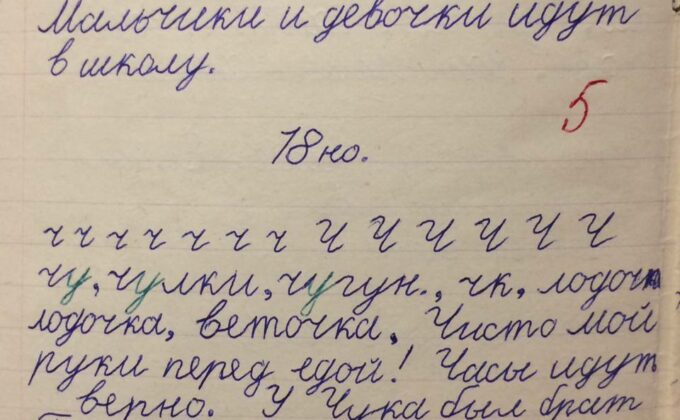 Мальчики и девочки идут
в школу.
5
18 но.
ч ч ч ч ч ч ч ч Ч Ч Ч Ч Ч Ч
чу, чулки, чугун., чк, лодочк
лодочка, веточка. Чисто мой
руки перед едой! Часы идут
верно. У Чука был брат